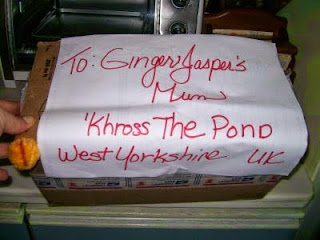 To: Ginger Jasper's
Mum
'Khross The Pond
West Yorkshire UK